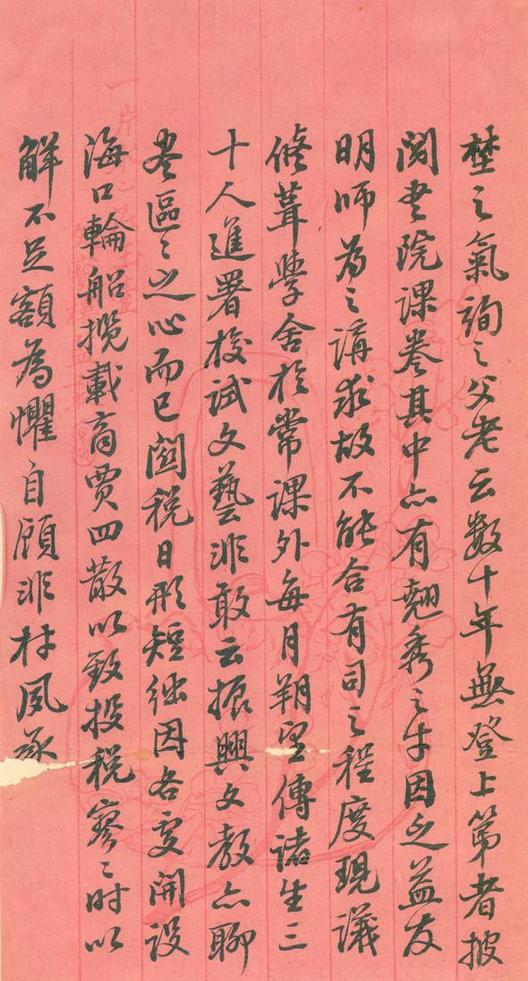 堃之氣詢之父老云數十年無登上第者披
閱書院課卷其中亦有翹秀之才因乏益友
明師為之講求故不能合有司之程度現議
脩葺學舍於常課外每月朔望傳諸生三
十人進署校試文藝非敢云振興文教亦聊
盡區〻之心而已關稅日形短絀因各處開設
海口輪船攬載商賈四散以致投稅寥〻時以
解不足額為懼自顧非材夙承